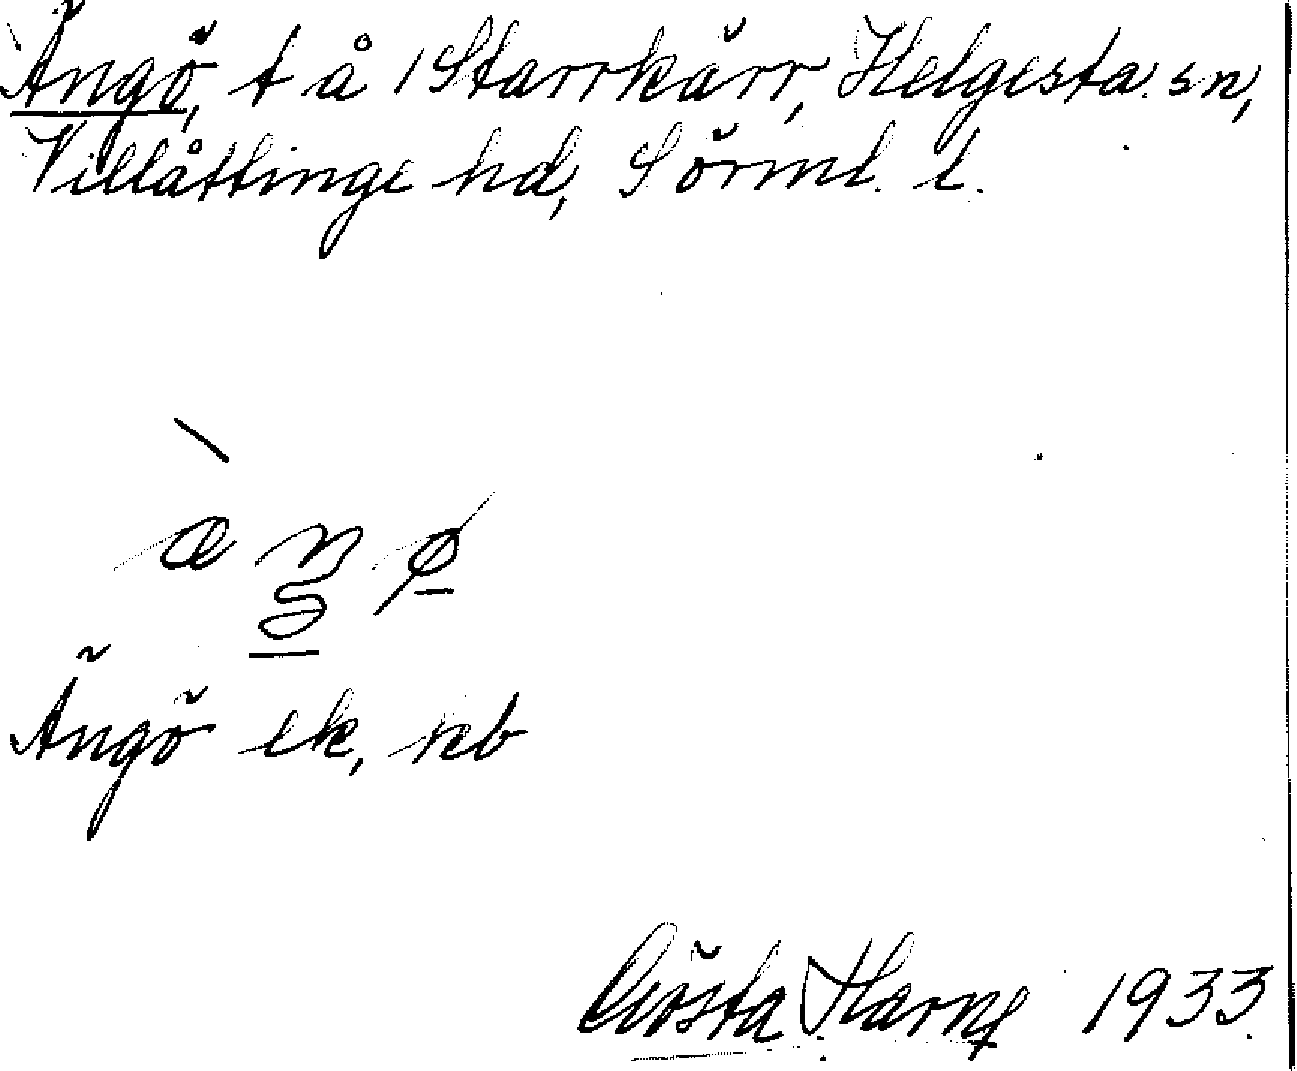 Ängö, t å 1 Starrkärr, Helgesta sn,
Villåttinge hd, Sörml. l.
Ängö ek, kb
Gösta 1933